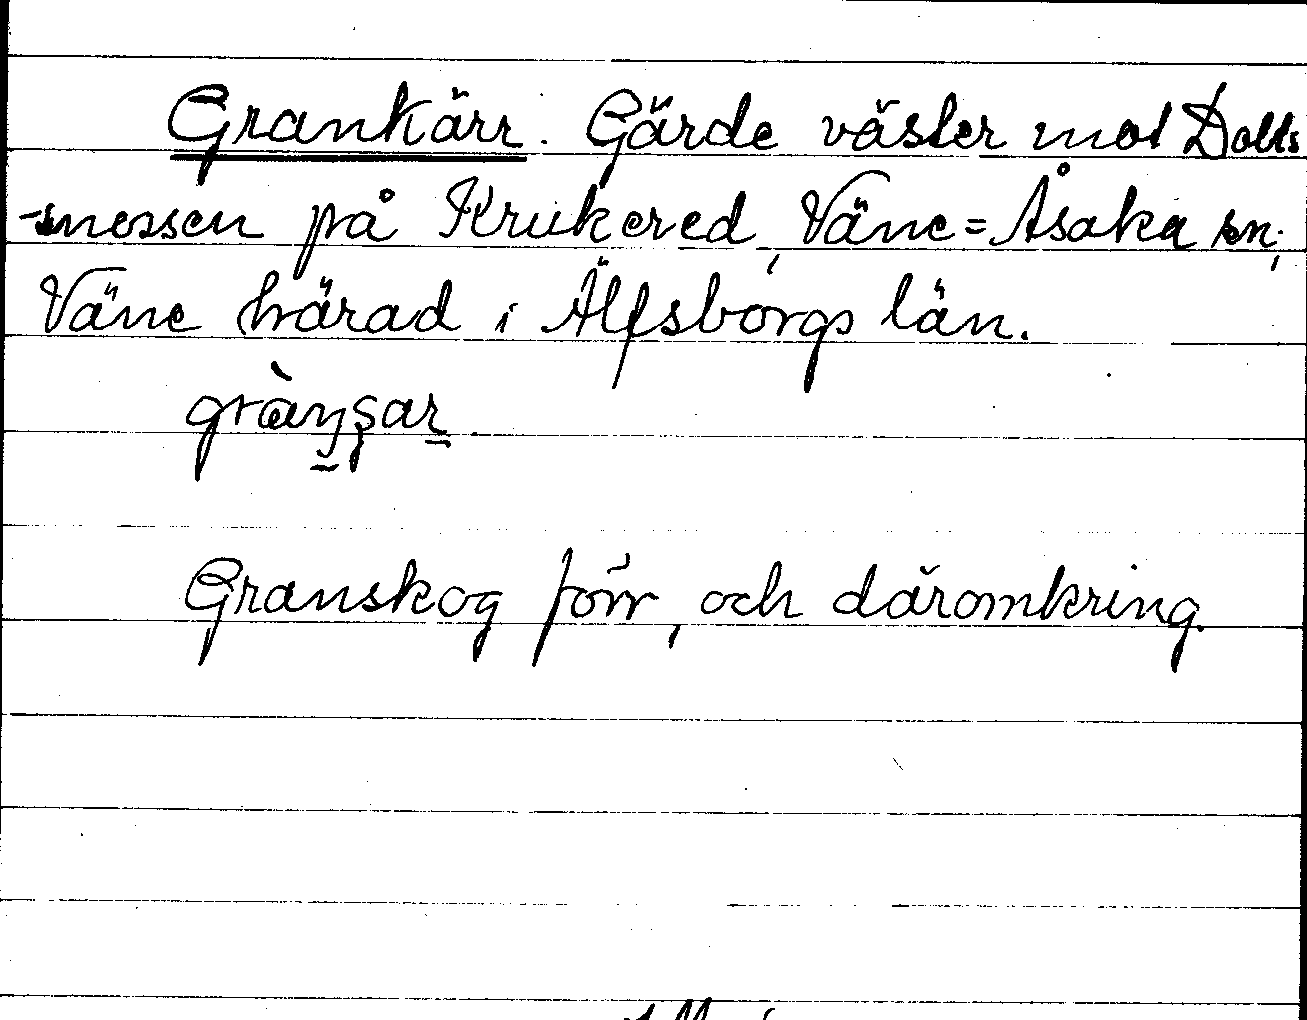 Grankärr. Gärde väster mot Dolts
-mossen på Krukered, Väne=Åsaka sn;
Väne härad i Älfsborgs län.
Granskog förr, och däromkring.